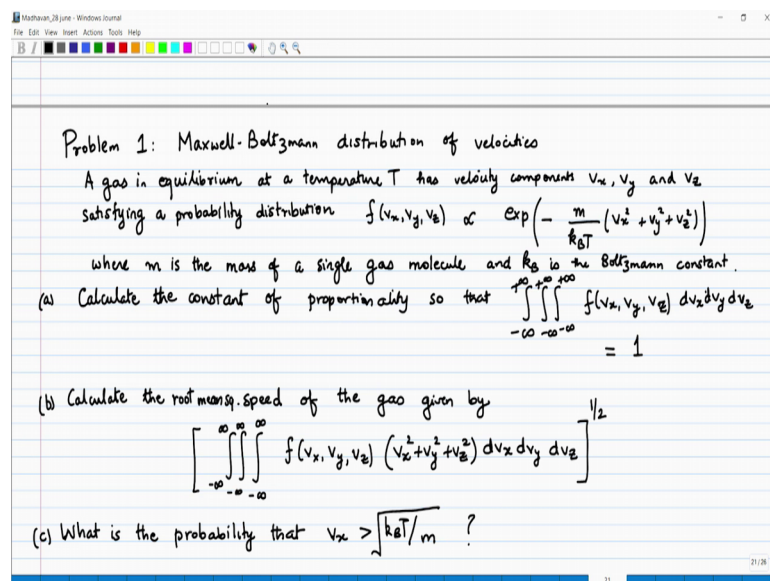 Madhavan_28 june - Windows Journal
File Edit View Insert Actions Tools Help
Problem 1: Maxwell-Boltzmann distribution of velocities
A gas in equilibrium at a temperature T has velocity components Vx, Vy and Vz
satisfying a probability distribution f(Vx, Vy, Vz) ∝ exp(- m/kBT (Vx² + Vy² + Vz²))
where m is the mass of a single gas molecule and kB is the Boltzmann constant.
(a) Calculate the constant of proportionality so that ∫_{-∞}^{+∞} ∫_{-∞}^{+∞} ∫_{-∞}^{+∞} f(Vx, Vy, Vz) dvx dvy dvz
= 1
(b) Calculate the root mean sq. speed of the gas given by
[ ∫_{-∞}^{∞} ∫_{-∞}^{∞} ∫_{-∞}^{∞} f(Vx, Vy, Vz) (Vx² + Vy² + Vz²) dvx dvy dvz ]^{1/2}
(c) What is the probability that Vx > √(kBT/m) ?
21/26